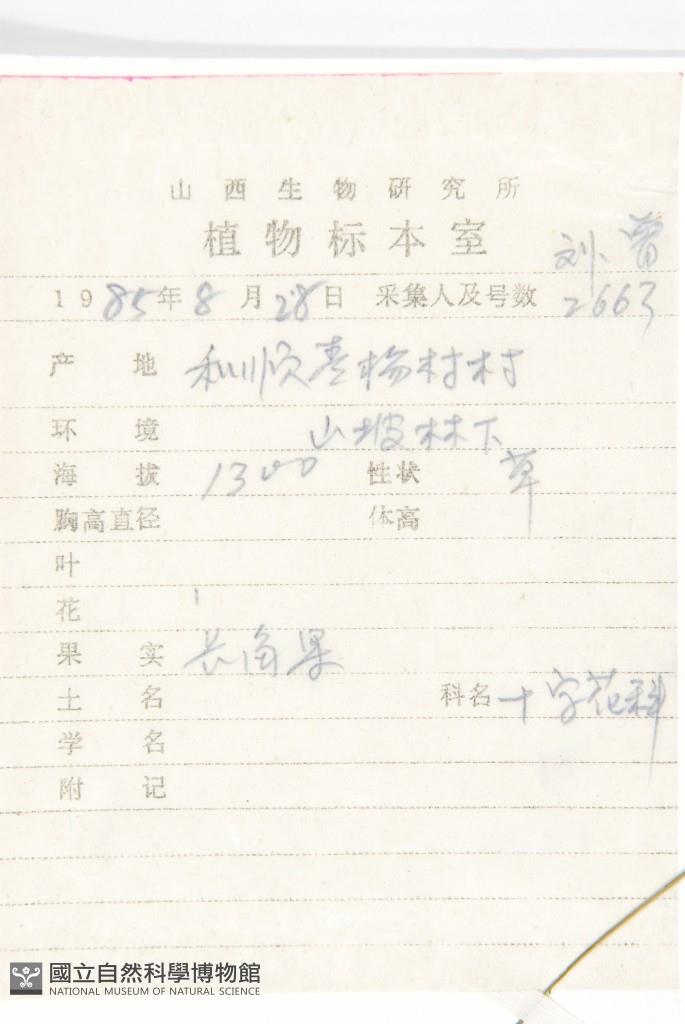 山西生物研究所
植物标本室
刘 曾
1985年8月28日 采集人及号数 2663
产地 和顺 杨村村
环境 山坡林下
海拔 1300 性状 草
胸高直径 体高
叶
花
果实 长角果
土名 科名 十字花科
学名
附记
國立自然科學博物館
NATIONAL MUSEUM OF NATURAL SCIENCE